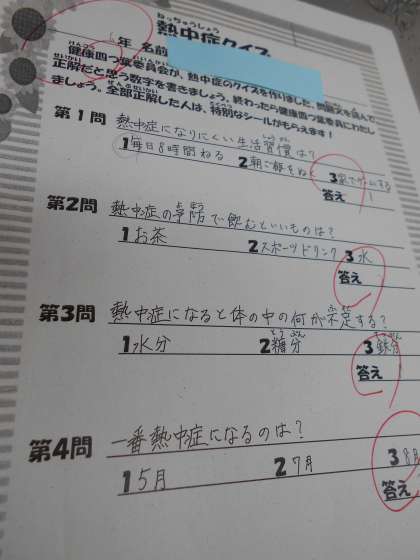 熱中症クイズ
年 名前
健康四つ葉委員会が、熱中症のクイズを作りました。問題文を読んで
正解だと思う数字を書きましょう。終わったら健康四つ葉委員にわたし
ましょう。全部正解した人は、特別なシールがもらえます！
第1問 熱中症になりにくい生活習慣は？
1毎日8時間ねる 2朝ご飯をぬく 3家でゲームする
答え 1
第2問 熱中症の予防で飲むといいものは？
1お茶 2スポーツドリンク 3水
答え
第3問 熱中症になると体の中の何が不足する？
1水分 2糖分 3鉄分
答え
第4問 一番熱中症になるのは？
1 5月 2 7月 3 8月
答え